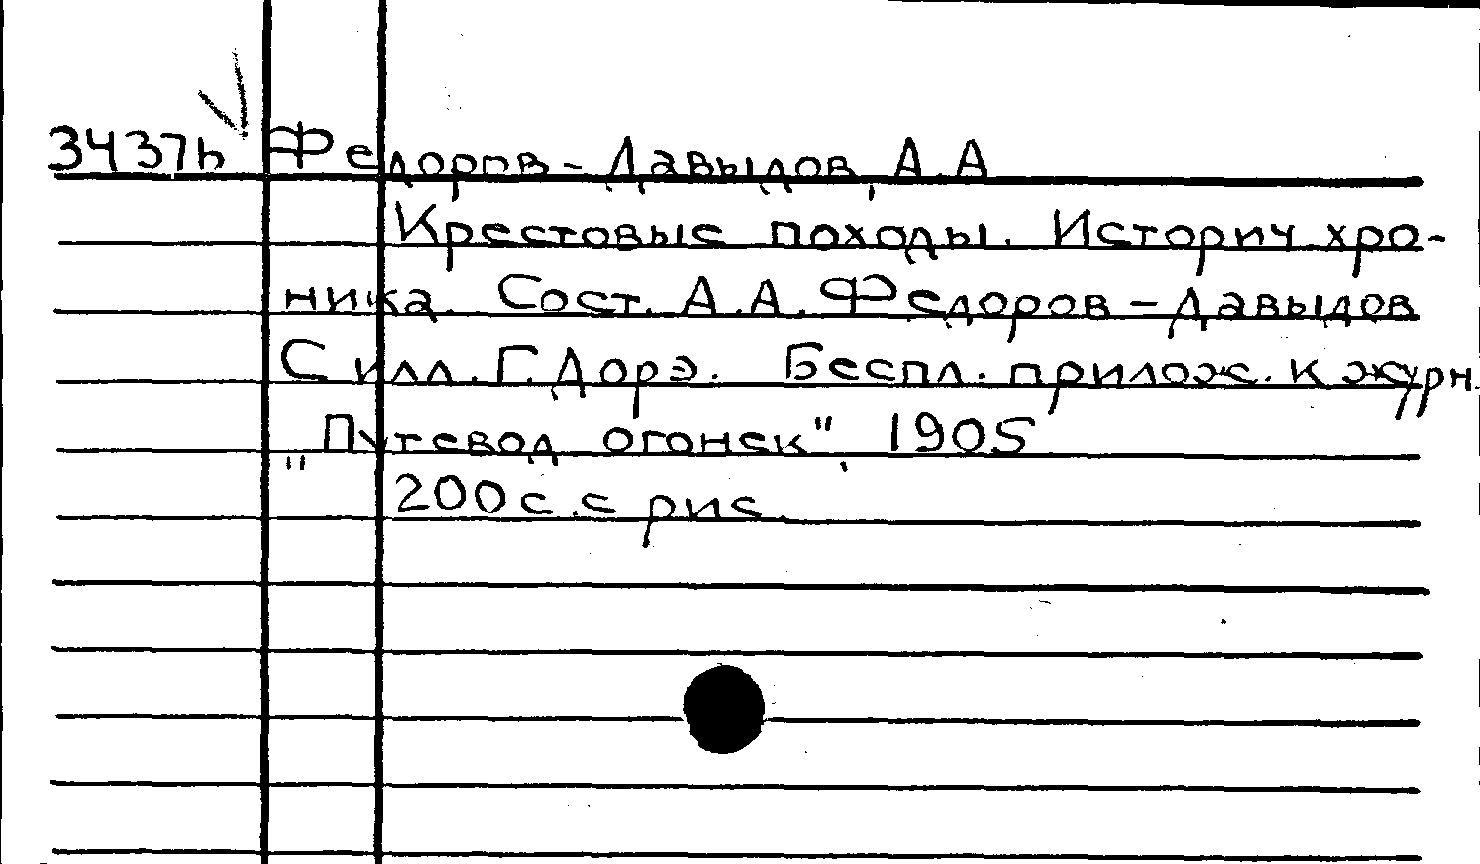 3437h Федоров-Давыдов, А.А
Крестовые походы. Историч хро-
ника. Сост. А.А. Федоров-Давыдов
С илл. Г. Дорэ. Беспл. прилож. к журн.
"Путевод огонек", 1905
200 с. с рис.